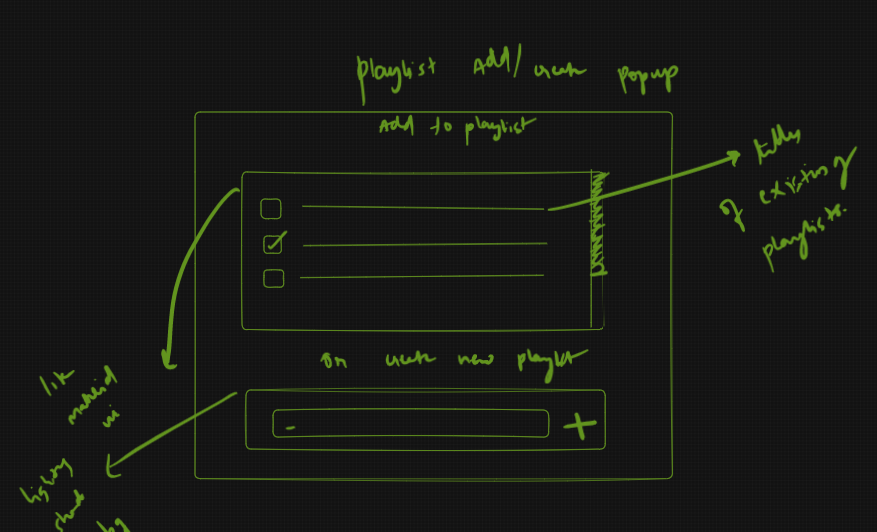 playlist Add/create popup
Add to playlist
titles
of existing
playlists.
or create new playlist
like
material
ui
-
+